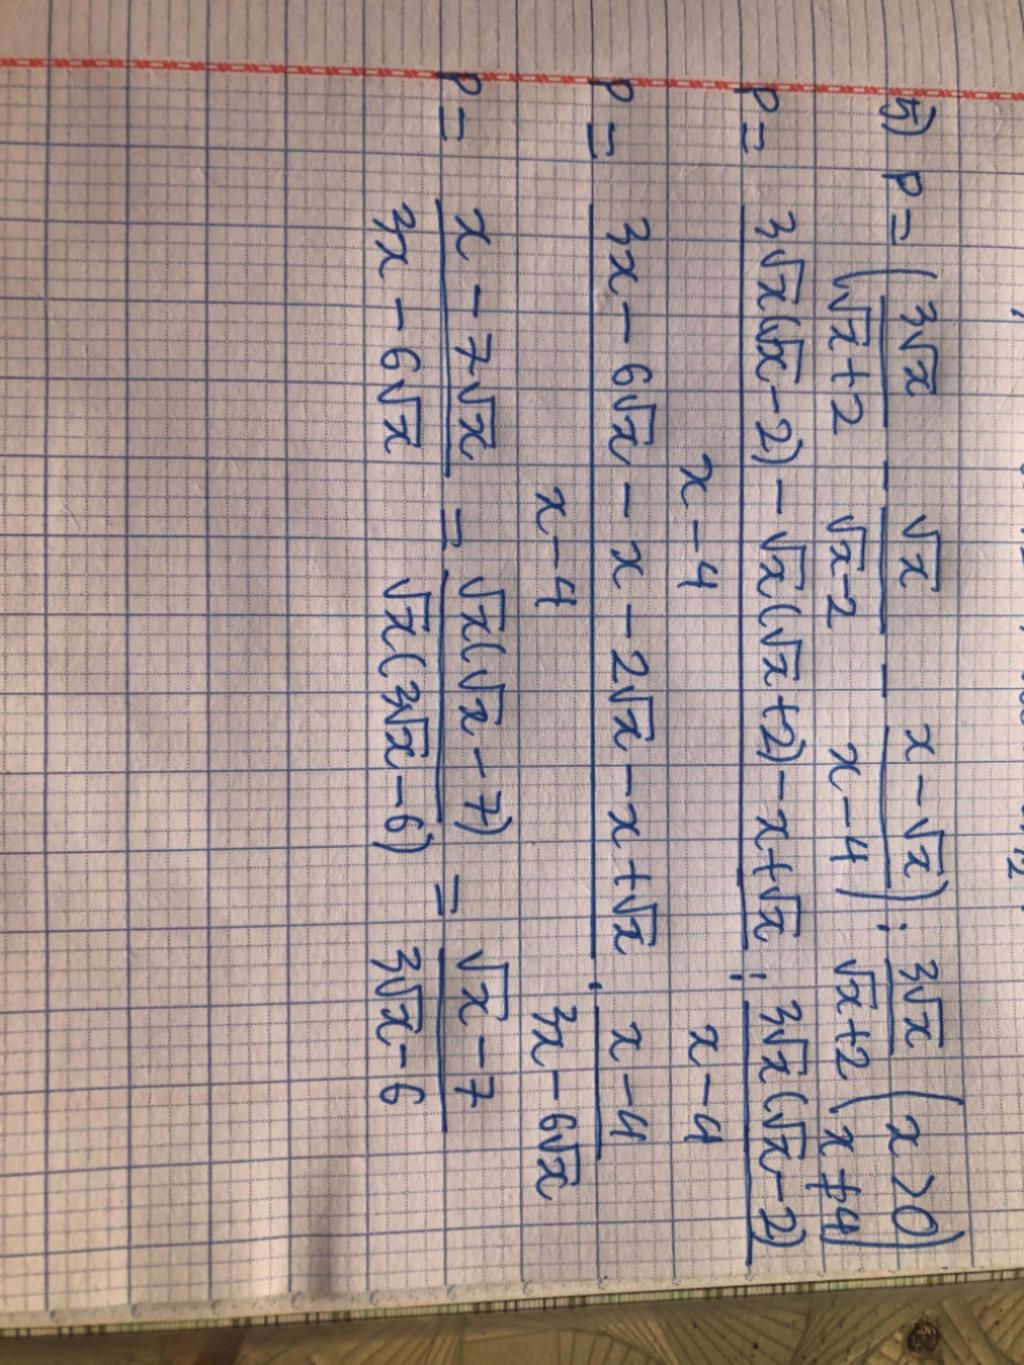 5) P = (3√x/(√x+2) - √x/(√x-2) - (x-√x)/(x-4)) : 3√x/(√x+2) (x>0, x≠4)
P = (3√x(√x-2) - √x(√x+2) - x+√x)/(x-4) : 3√x(√x-2)/(x-4)
P = (3x - 6√x - x - 2√x - x + √x)/(x-4) . (x-4)/(3x-6√x)
P = (x - 7√x)/(3x - 6√x) = √x(√x - 7)/√x(3√x - 6) = (√x - 7)/(3√x - 6)